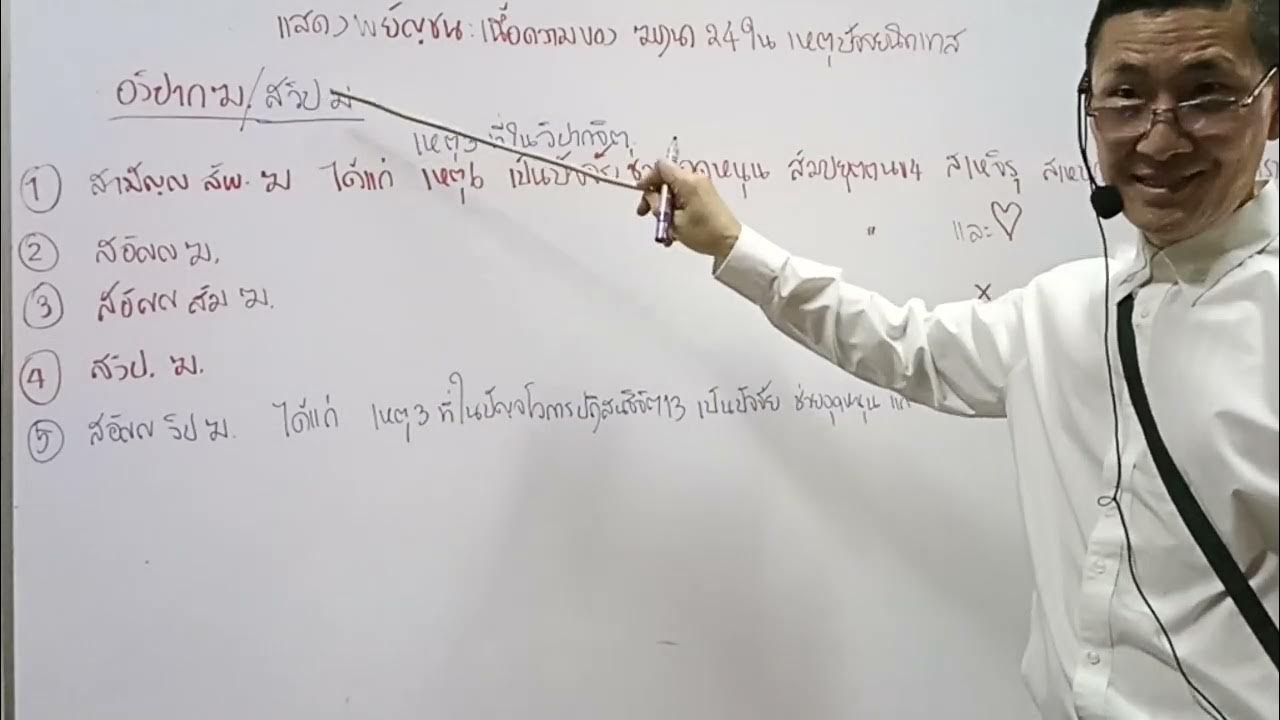 แสดงพยัญชนะเนื้อความของ ฆฏนา 24 ใน เหตุปัจจยนิทเทส
อวิปาก ฆ/สวิป ฆ
เหตุ3 ที่ในวิปากจิต
① สามัญญ สัพ. ฆ ได้แก่ เหตุ6 เป็นปัจจัย หนุน สัมปยุตตน14 สเหจิรุ
" และ♡
② สอัญญ ฆ.
③ สอัญญ สัม ฆ. ×
④ สวิป. ฆ.
⑤ สอัญญ วิป ฆ. ได้แก่ เหตุ3 ที่ในปัญจโวการปฏิสนธิจิต13 เป็นปัจจัย ช่วยอุดหนุน แก่